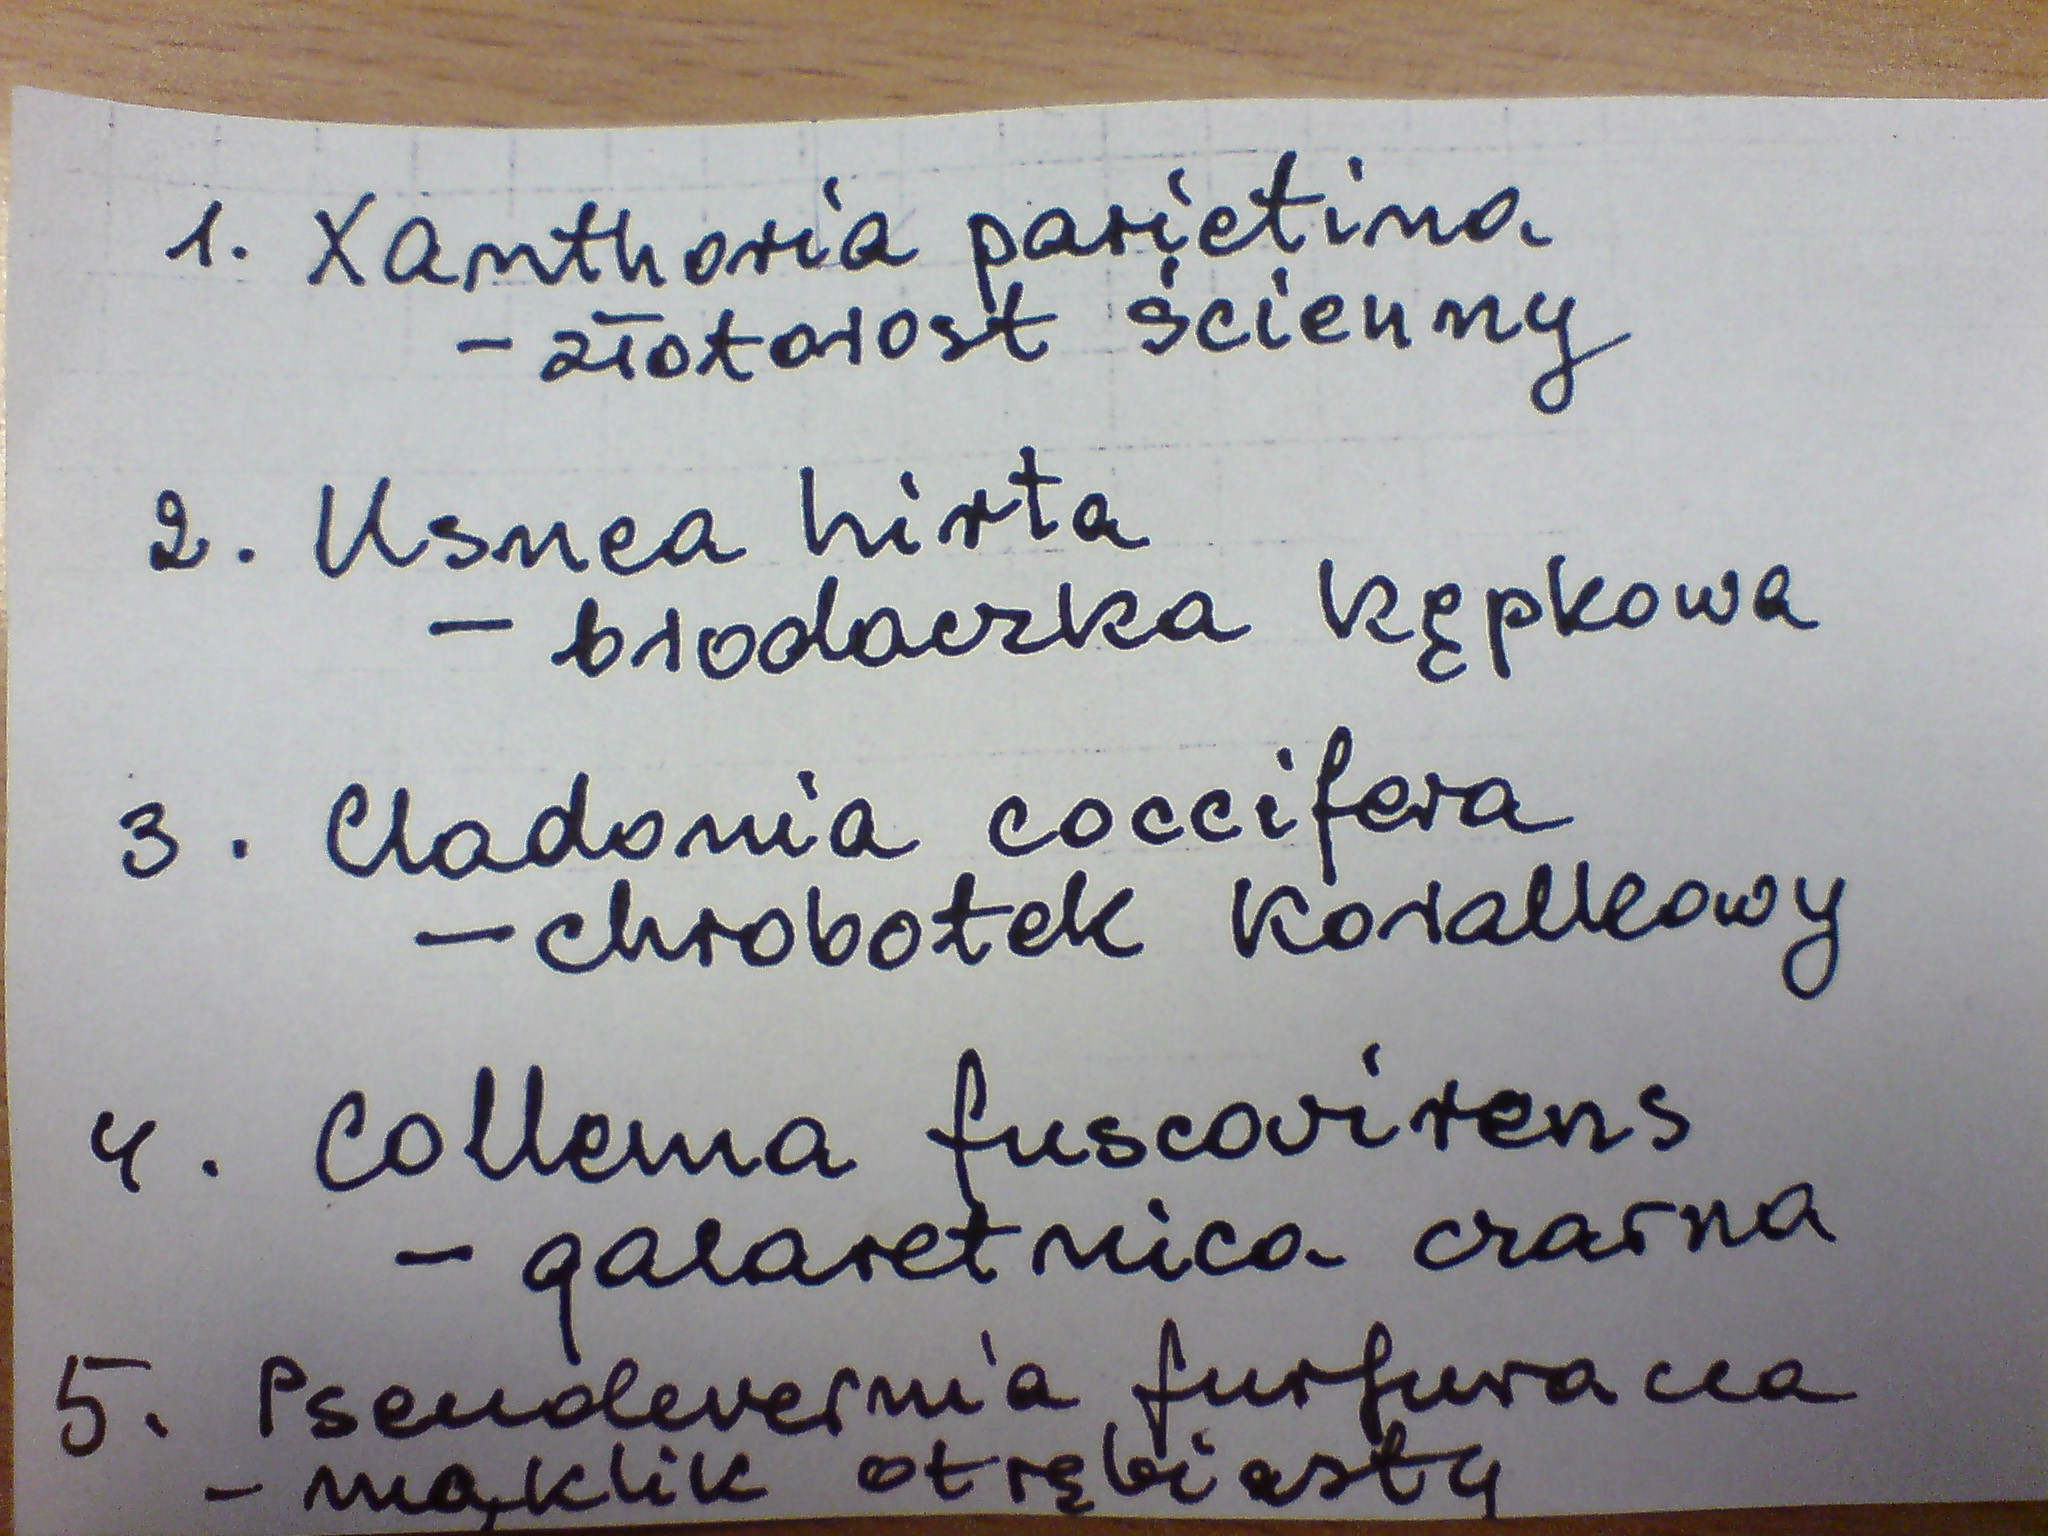 1. Xanthoria parietina
- złotorost ścienny
2. Usnea hirta
- brodaczka kępkowa
3. Cladonia coccifera
- chrobotek koralkowy
4. Collema fuscovirens
- galaretnica czarna
5. Pseudevernia furfuracea
- mąklik otrębiasty